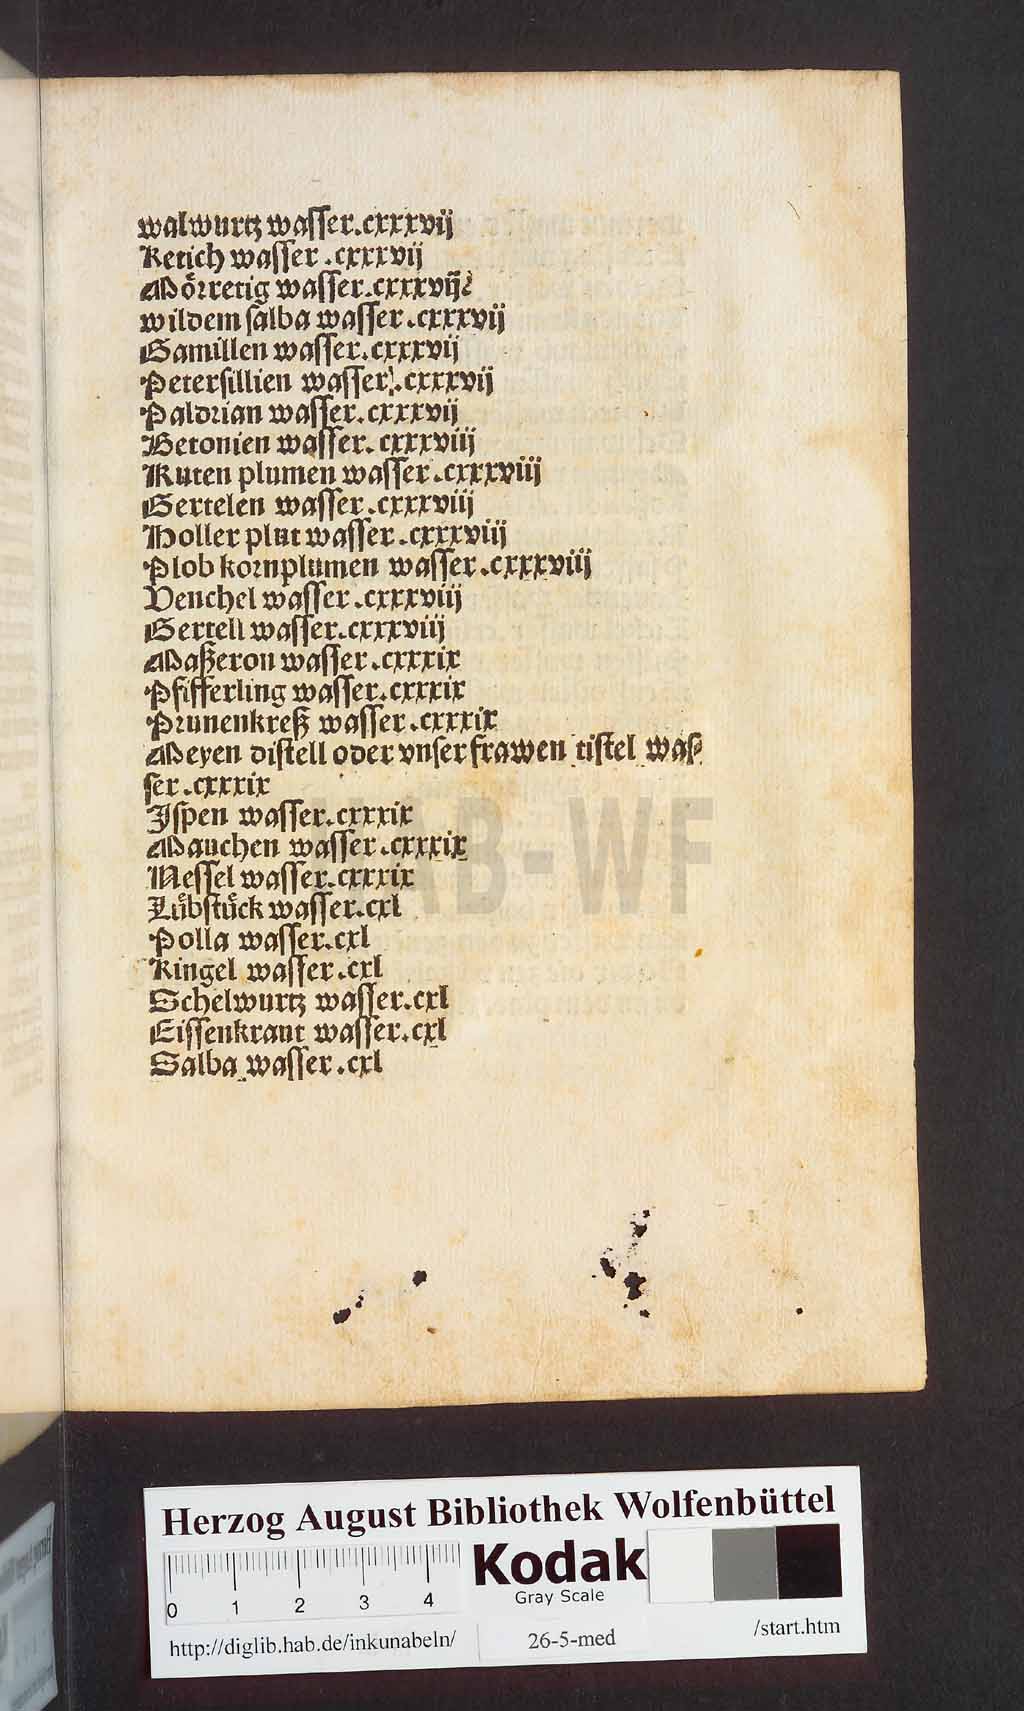 walwurtz wasſer.cxxxvij
Retich wasſer .cxxxvij
Moͤrretig wasſer.cxxxvij
wildem ſalba wasſer.cxxxvij
Gamillen wasſer.cxxxvij
Peterſillien wasſer.cxxxvij
Paldrian wasſer.cxxxvij
Betonien wasſer.cxxxviij
Ruten plumen wasſer.cxxxviij
Gertelen wasſer.cxxxviij
Holler plut wasſer.cxxxviij
Plob kornplumen wasſer.cxxxviij
Venchel wasſer.cxxxviij
Gertell wasſer.cxxxviij
Maßeron wasſer.cxxxix
Pfifferling wasſer.cxxxix
Prunenkreß wasſer.cxxxix
Meyen diſtell oder vnſer frawen tiſtel waſ⸗
ſer.cxxxix
Iſpen wasſer.cxxxix
Mauchen wasſer.cxxxix
Nesſel wasſer.cxxxix
Luͤbſtuͤck wasſer.cxl
Polla wasſer.cxl
Ringel wasſer.cxl
Schelwurtz wasſer.cxl
Eiſſenkraut wasſer.cxl
Salba wasſer.cxl
HAB-WF
Herzog August Bibliothek Wolfenbüttel
0 1 2 3 4
Kodak
Gray Scale
http://diglib.hab.de/inkunabeln/ 26-5-med /start.htm